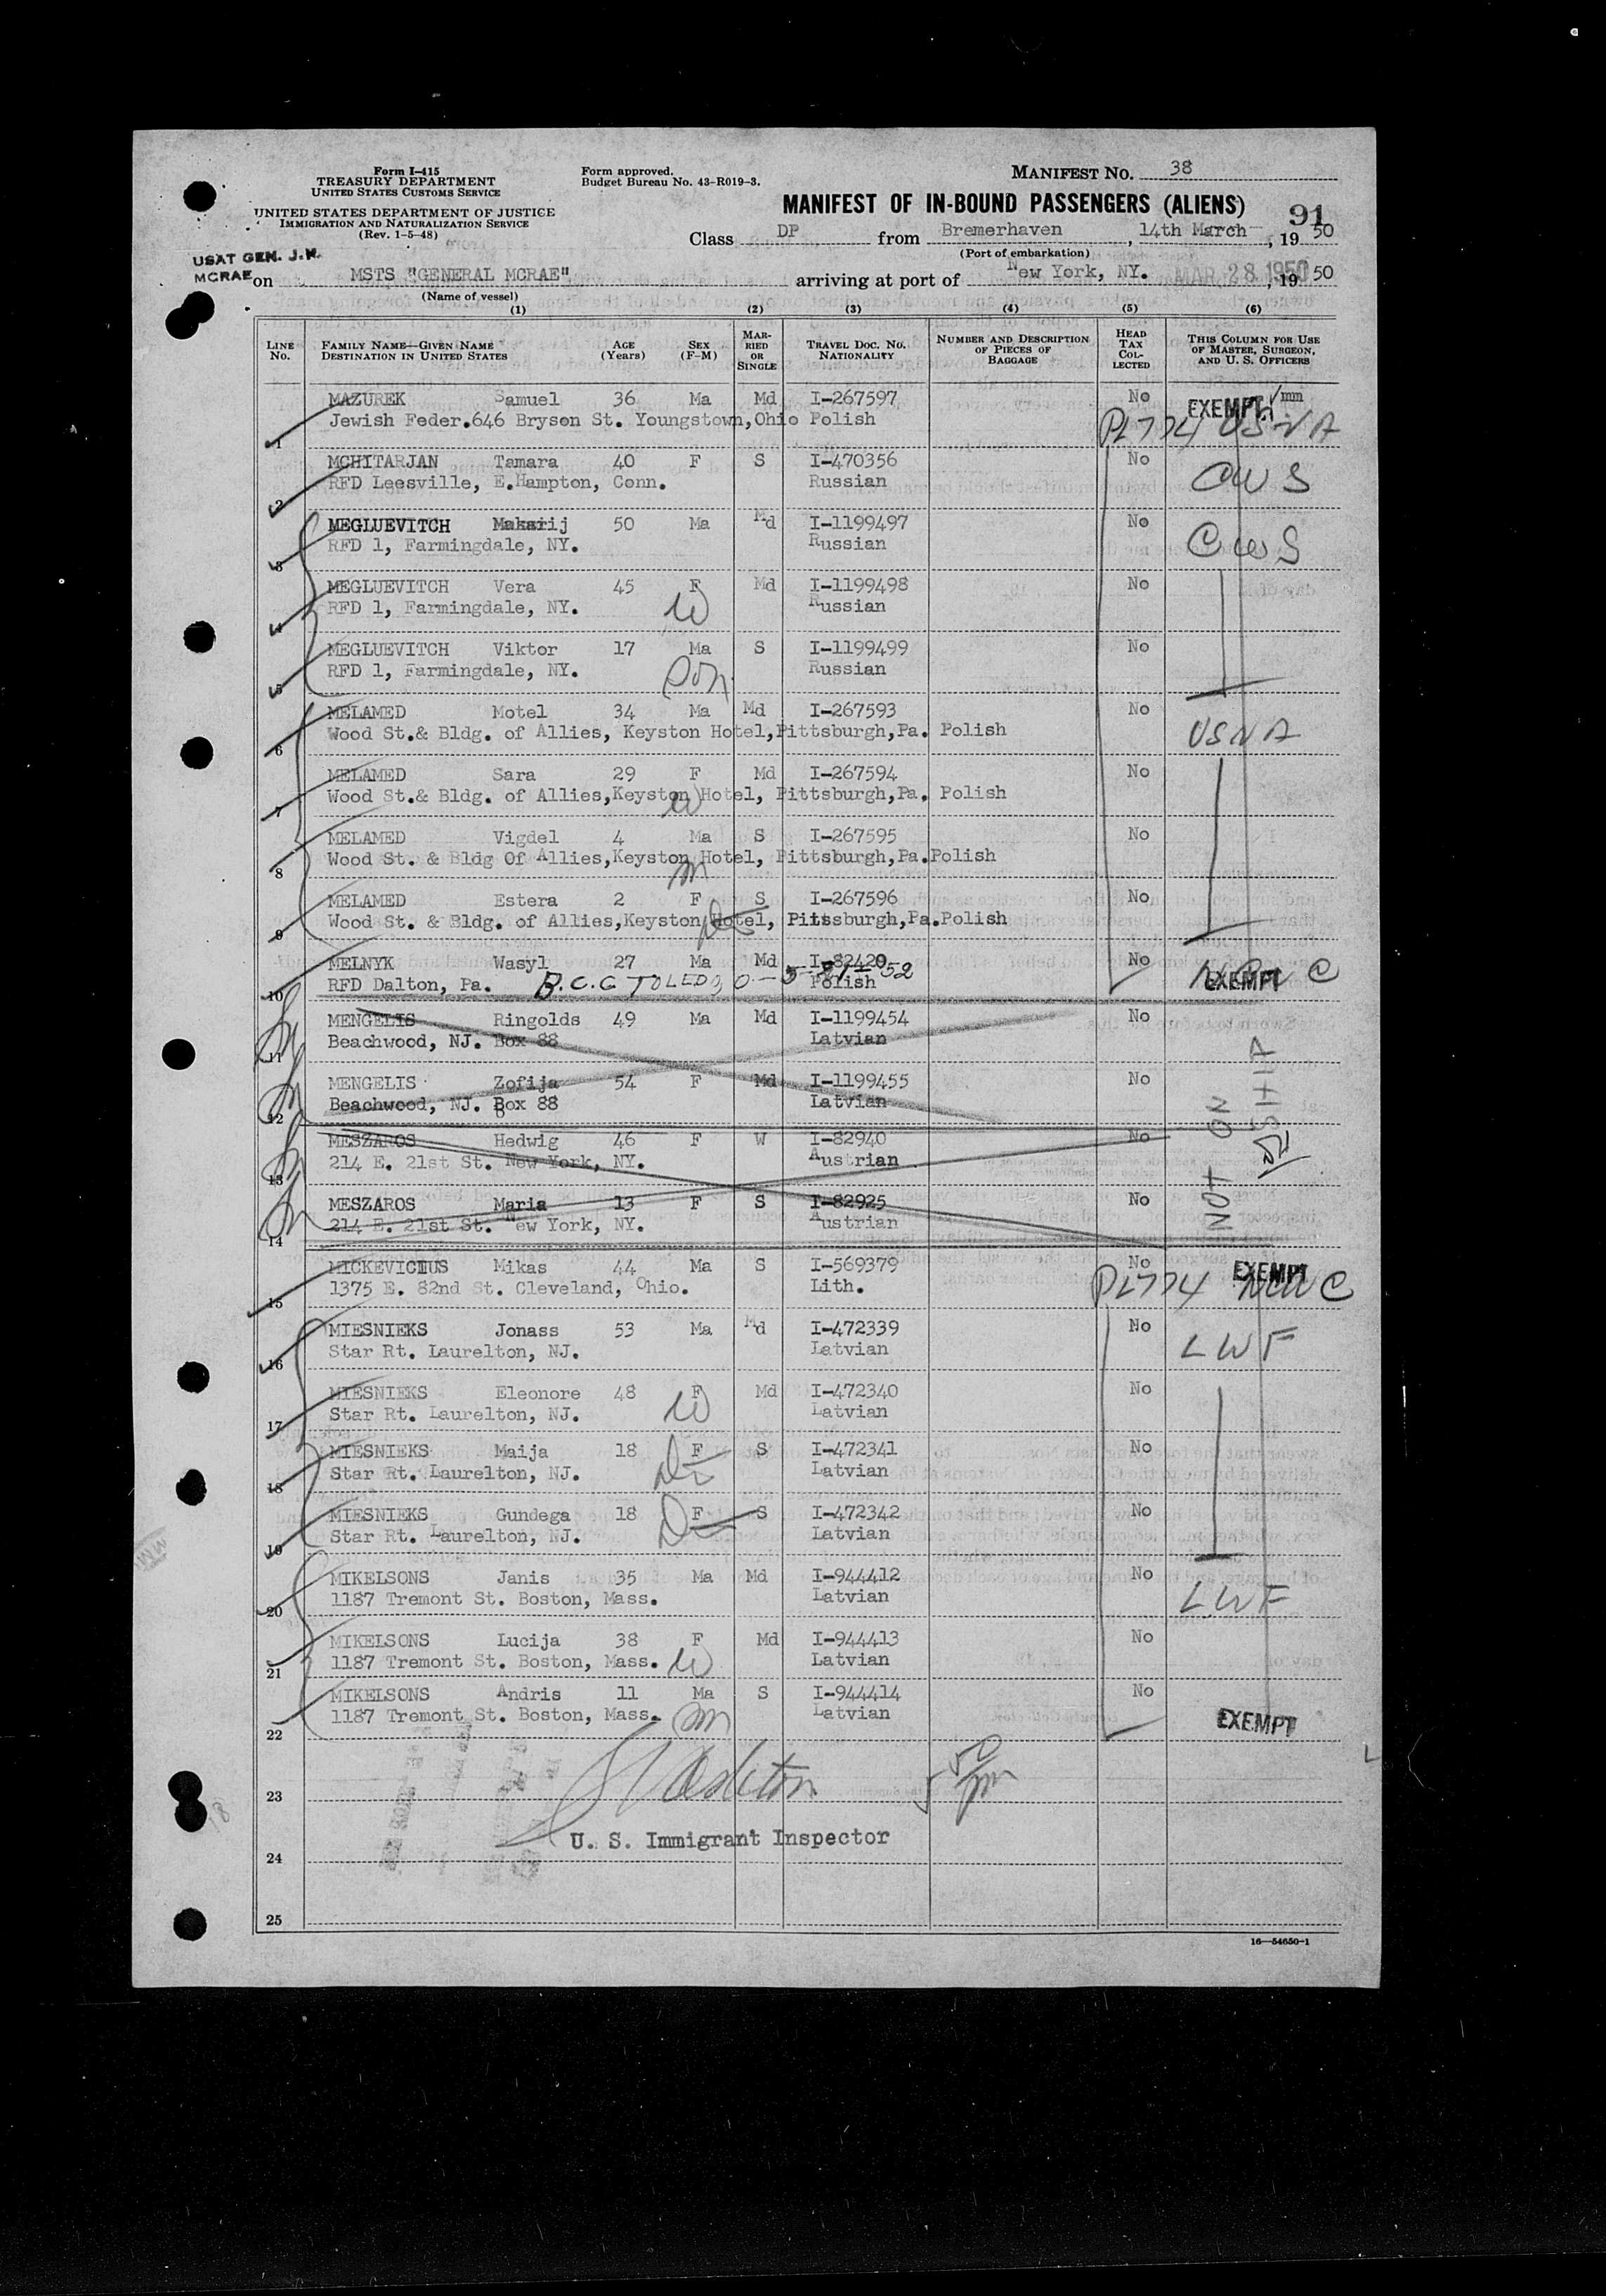 Form I-415
TREASURY DEPARTMENT
UNITED STATES CUSTOMS SERVICE
UNITED STATES DEPARTMENT OF JUSTICE
IMMIGRATION AND NATURALIZATION SERVICE
(Rev. 1-5-48)
Form approved.
Budget Bureau No. 43-R019-3.
MANIFEST NO. 38
MANIFEST OF IN-BOUND PASSENGERS (ALIENS)
91
Class DP from Bremerhaven, 14th March, 1950
(Port of embarkation)
USAT GEN. J.H.
MCRAE
on MSTS "GENERAL MCRAE" arriving at port of New York, NY. MAR 28 1950, 1950
(Name of vessel)
(1) (2) (3) (4) (5) (6)
LINE No. FAMILY NAME—GIVEN NAME DESTINATION IN UNITED STATES AGE (Years) SEX (F-M) MARRIED OR SINGLE TRAVEL DOC. NO. NATIONALITY NUMBER AND DESCRIPTION OF PIECES OF BAGGAGE HEAD TAX COLLECTED THIS COLUMN FOR USE OF MASTER, SURGEON, AND U. S. OFFICERS
MAZUREK Samuel 36 Ma Md I-267597 No EXEMPT
1 Jewish Feder.646 Bryson St. Youngstown,Ohio Polish PL774 USNA
MCHITARJAN Tamara 40 F S I-470356 No
2 RFD Leesville, E.Hampton, Conn. Russian CWS
MEGLUEVITCH Makarij 50 Ma Md I-1199497 No
3 RFD 1, Farmingdale, NY. Russian CWS
MEGLUEVITCH Vera 45 F Md I-1199498 No
4 RFD 1, Farmingdale, NY. W Russian
MEGLUEVITCH Viktor 17 Ma S I-1199499 No
5 RFD 1, Farmingdale, NY. Son Russian
MELAMED Motel 34 Ma Md I-267593 No
6 Wood St.& Bldg. of Allies, Keyston Hotel,Pittsburgh,Pa. Polish USNA
MELAMED Sara 29 F Md I-267594 No
7 Wood St.& Bldg. of Allies,Keyston Hotel, Pittsburgh,Pa. Polish W
MELAMED Vigdel 4 Ma S I-267595 No
8 Wood St. & Bldg Of Allies,Keyston Hotel, Pittsburgh,Pa.Polish
MELAMED Estera 2 F S I-267596 No
9 Wood St. & Bldg. of Allies,Keyston Hotel, Pittsburgh,Pa.Polish
MELNYK Wasyl 27 Ma Md I-82420 No
10 RFD Dalton, Pa. B.C.G TOLEDO, O-5-21-52 Polish EXEMPT NCWC
MENGELIS Ringolds 49 Ma Md I-1199454 No
11 Beachwood, NJ. Box 88 Latvian
MENGELIS Zofija 54 F Md I-1199455 No
12 Beachwood, NJ. Box 88 Latvian
MESZAROS Hedwig 46 F W I-82940 No
13 214 E. 21st St. New York, NY. Austrian
MESZAROS Maria 13 F S I-82925 No
14 214 E. 21st St. New York, NY. Austrian
NOT ON SHIP
MICKEVICIUS Mikas 44 Ma S I-569379 No EXEMPT
15 1375 E. 82nd St. Cleveland, Ohio. Lith. PL774 NCWC
MIESNIEKS Jonass 53 Ma Md I-472339 No
16 Star Rt. Laurelton, NJ. Latvian LWF
MIESNIEKS Eleonore 48 F Md I-472340 No
17 Star Rt. Laurelton, NJ. W Latvian
MIESNIEKS Maija 18 F S I-472341 No
18 Star Rt. Laurelton, NJ. Latvian
MIESNIEKS Gundega 18 F S I-472342 No
19 Star Rt. Laurelton, NJ. Latvian
MIKELSONS Janis 35 Ma Md I-944412 No
20 1187 Tremont St. Boston, Mass. Latvian LWF
MIKELSONS Lucija 38 F Md I-944413 No
21 1187 Tremont St. Boston, Mass. W Latvian
MIKELSONS Andris 11 Ma S I-944414 No
22 1187 Tremont St. Boston, Mass. Latvian EXEMPT
23
U. S. Immigrant Inspector
24
25
16—54650-1